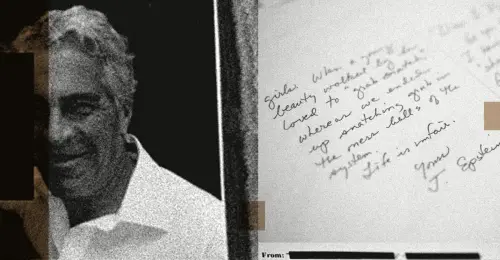 girls. When a young
beauty walked by he
loved to "grab snatch,"
whereas we ended
up snatching grub in
the mess halls of the
system. Life is unfair.
Yours
J. Epstein
From: